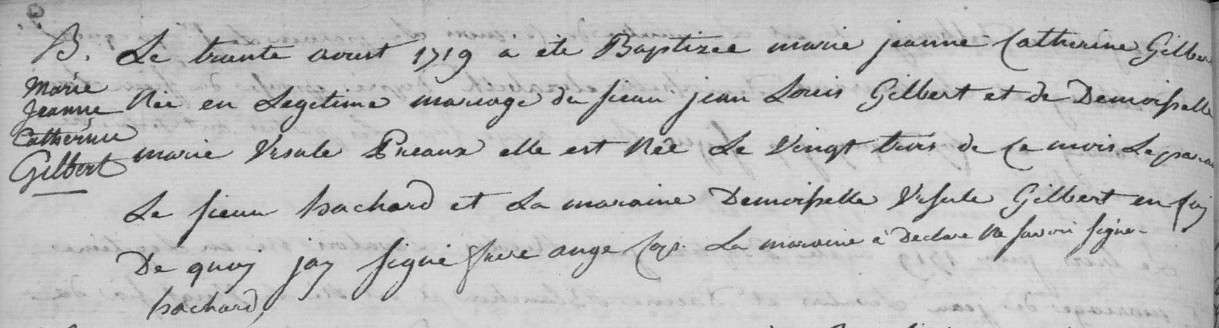 B.
Marie
Jeanne
Catherine
Gilbert
Le trante aoust 1719 a ete Baptizée marie jeanne Catherine Gilbert
Née en Legetime mariage du sieur jean Louis Gilbert et de Demoisselle
marie Vrsule Preaux elle est Née Le Vingt trois de Ce mois Le parain
Le sieur hachard et La maraine Demoisselle Vrsule Gilbert en foy
De quoy jay signé frere ange Cap. La maraine à Declare Ne savoir signe
hachard,